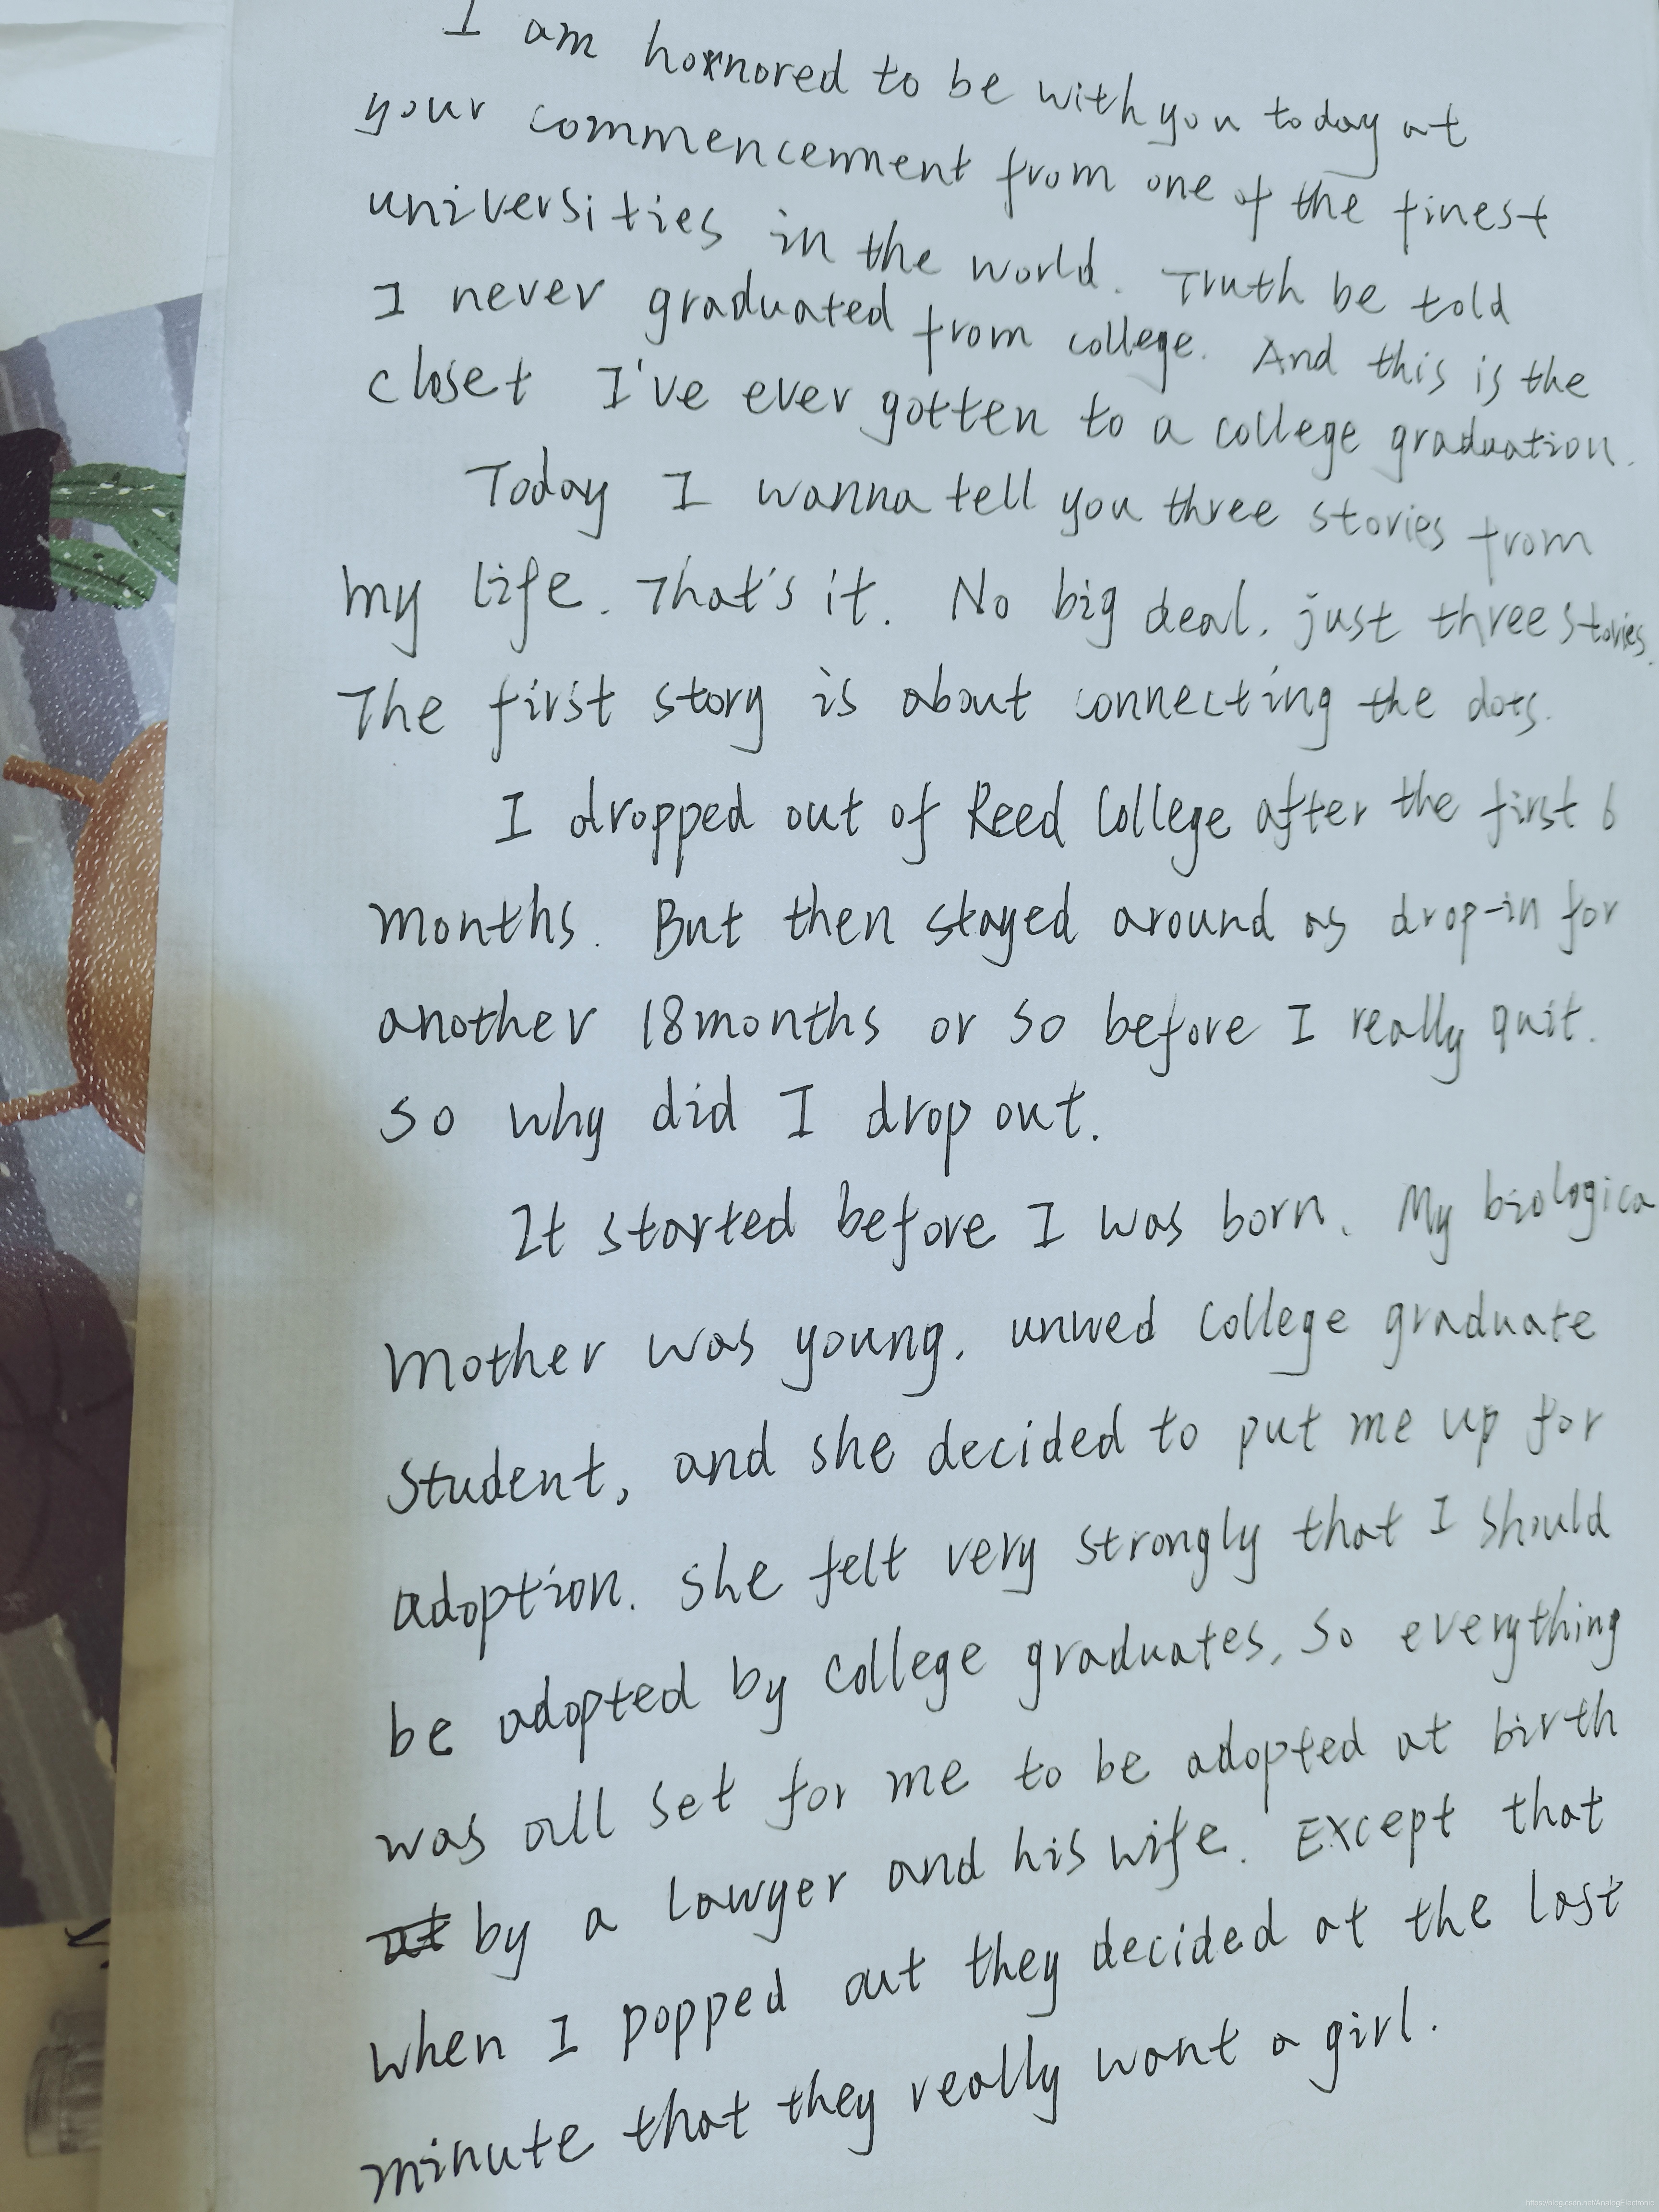 I am honored to be with you today at
your commencement from one of the finest
universities in the world. Truth be told
I never graduated from college. And this is the
closet I've ever gotten to a college graduation.
Today I wanna tell you three stories from
my life. That's it. No big deal. just three stories.
The first story is about connecting the dots.
I dropped out of Reed College after the first 6
months. But then stayed around as drop-in for
another 18months or so before I really quit.
so why did I drop out.
It started before I was born. My biologica
mother was young, unwed college graduate
student, and she decided to put me up for
adoption. she felt very strongly that I should
be adopted by college graduates, so everything
was all set for me to be adopted at birth
by a lawyer and his wife. Except that
when I popped out they decided at the last
minute that they really want a girl.
https://blog.csdn.net/AnalogElectronic